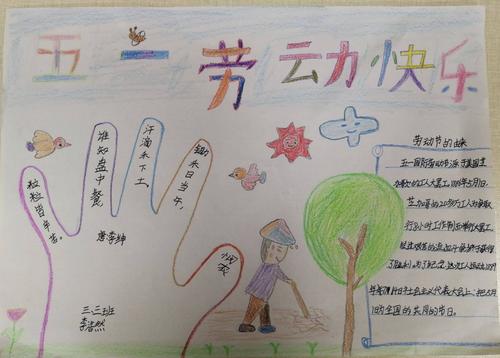 五一劳动快乐
悯农
唐李绅
锄禾日当午,
汗滴禾下土,
谁知盘中餐,
粒粒皆辛苦。
三、三班
李浩然
劳动节的由来
五一国际劳动节源于美国芝
加哥的工人大罢工.1886年5月1日,
芝加哥的20多万工人为争取
行8小时工作制而举行大罢工,
经过艰苦的流血斗争终于获得
了胜利.为了纪念这次工人运动1889
社会主义代表大会上:把5月
1日为全国的共同的节日。